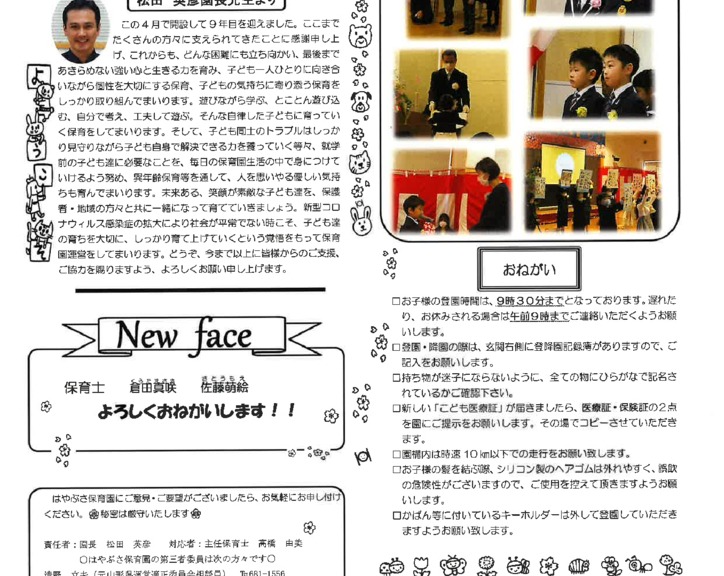 松田 英彦園長先生より
この４月で開設して９年目を迎えました。ここまで
たくさんの方々に支えられてきたことに感謝申し上
げ、これからも、どんな困難にも立ち向かい、最後まで
あきらめない強い心と生きる力を育み、子ども一人ひとりに向き合
いながら個性を大切にする保育、子どもの気持ちに寄り添う保育を
しっかり取り組んでまいります。遊びながら学ぶ、とことん遊び込
む、自分で考え、工夫して遊ぶ。そんな自律した子どもに育ってい
く保育をしてまいります。そして、子ども同士のトラブルはしっか
り見守りながら子ども自身で解決できる力を養っていく等々、就学
前の子ども達に必要なことを、毎日の保育園生活の中で身につけて
いけるよう努め、異年齢保育等を通して、人を思いやる優しい気持
ちも育んでまいります。未来ある、笑顔が素敵な子ども達を、保護
者・地域の方々と共に一緒になって育てていきましょう。新型コロ
ナウィルス感染症の拡大により社会が平常でない時こそ、子ども達
の育ちを大切に、しっかり育て上げていくという覚悟をもって保育
園運営をしてまいります。どうぞ、今まで以上に皆様からのご支援、
ご協力を賜りますよう、よろしくお願い申し上げます。
ようこそ
New face
保育士 倉田真咲 佐藤萌絵
さとうもえ
よろしくおねがいします！！
はやぶさ保育園にご意見・ご要望がございましたら、お気軽にお申し付け
ください。秘密は厳守いたします
責任者：園長 松田 英彦 対応者：主任保育士 髙橋 由美
○はやぶさ保育園の第三者委員は次の方々です○
おねがい
□お子様の登園時間は、９時３０分までとなっております。遅れた
り、お休みされる場合は午前９時までご連絡いただくようお願
いします。
□登園・降園の際は、玄関右側に登降園記録簿がありますので、ご
記入をお願いします。
□持ち物が迷子にならないように、全ての物にひらがなで記名さ
れているかご確認下さい。
□新しい「こども医療証」が届きましたら、医療証・保険証の２点
を園にご提示をお願いします。その場でコピーさせていただき
ます。
□園構内は時速１０㎞以下での走行をお願い致します。
□お子様の髪を結ぶ際、シリコン製のヘアゴムは外れやすく、誤飲
の危険性がございますので、ご使用を控えて頂きますようお願
いします。
□かばん等に付いているキーホルダーは外して登園していただき
ますようお願い致します。